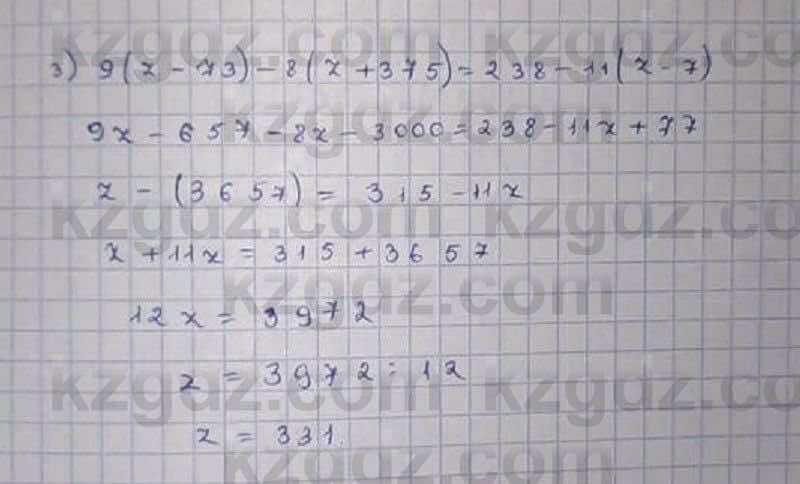 kzgdz.com kzgdz.com
3) 9(x - 73) - 8(x + 375) = 238 - 11(x - 7)
9x - 657 - 8x - 3000 = 238 - 11x + 77
x - (3657) = 315 - 11x
kzgdz.com kzgdz.co
x + 11x = 315 + 3657
kzgdz.com
12x = 3972
x = 3972 : 12
kzgdz.com kzgdz.co
x = 331.
kzgdz.com